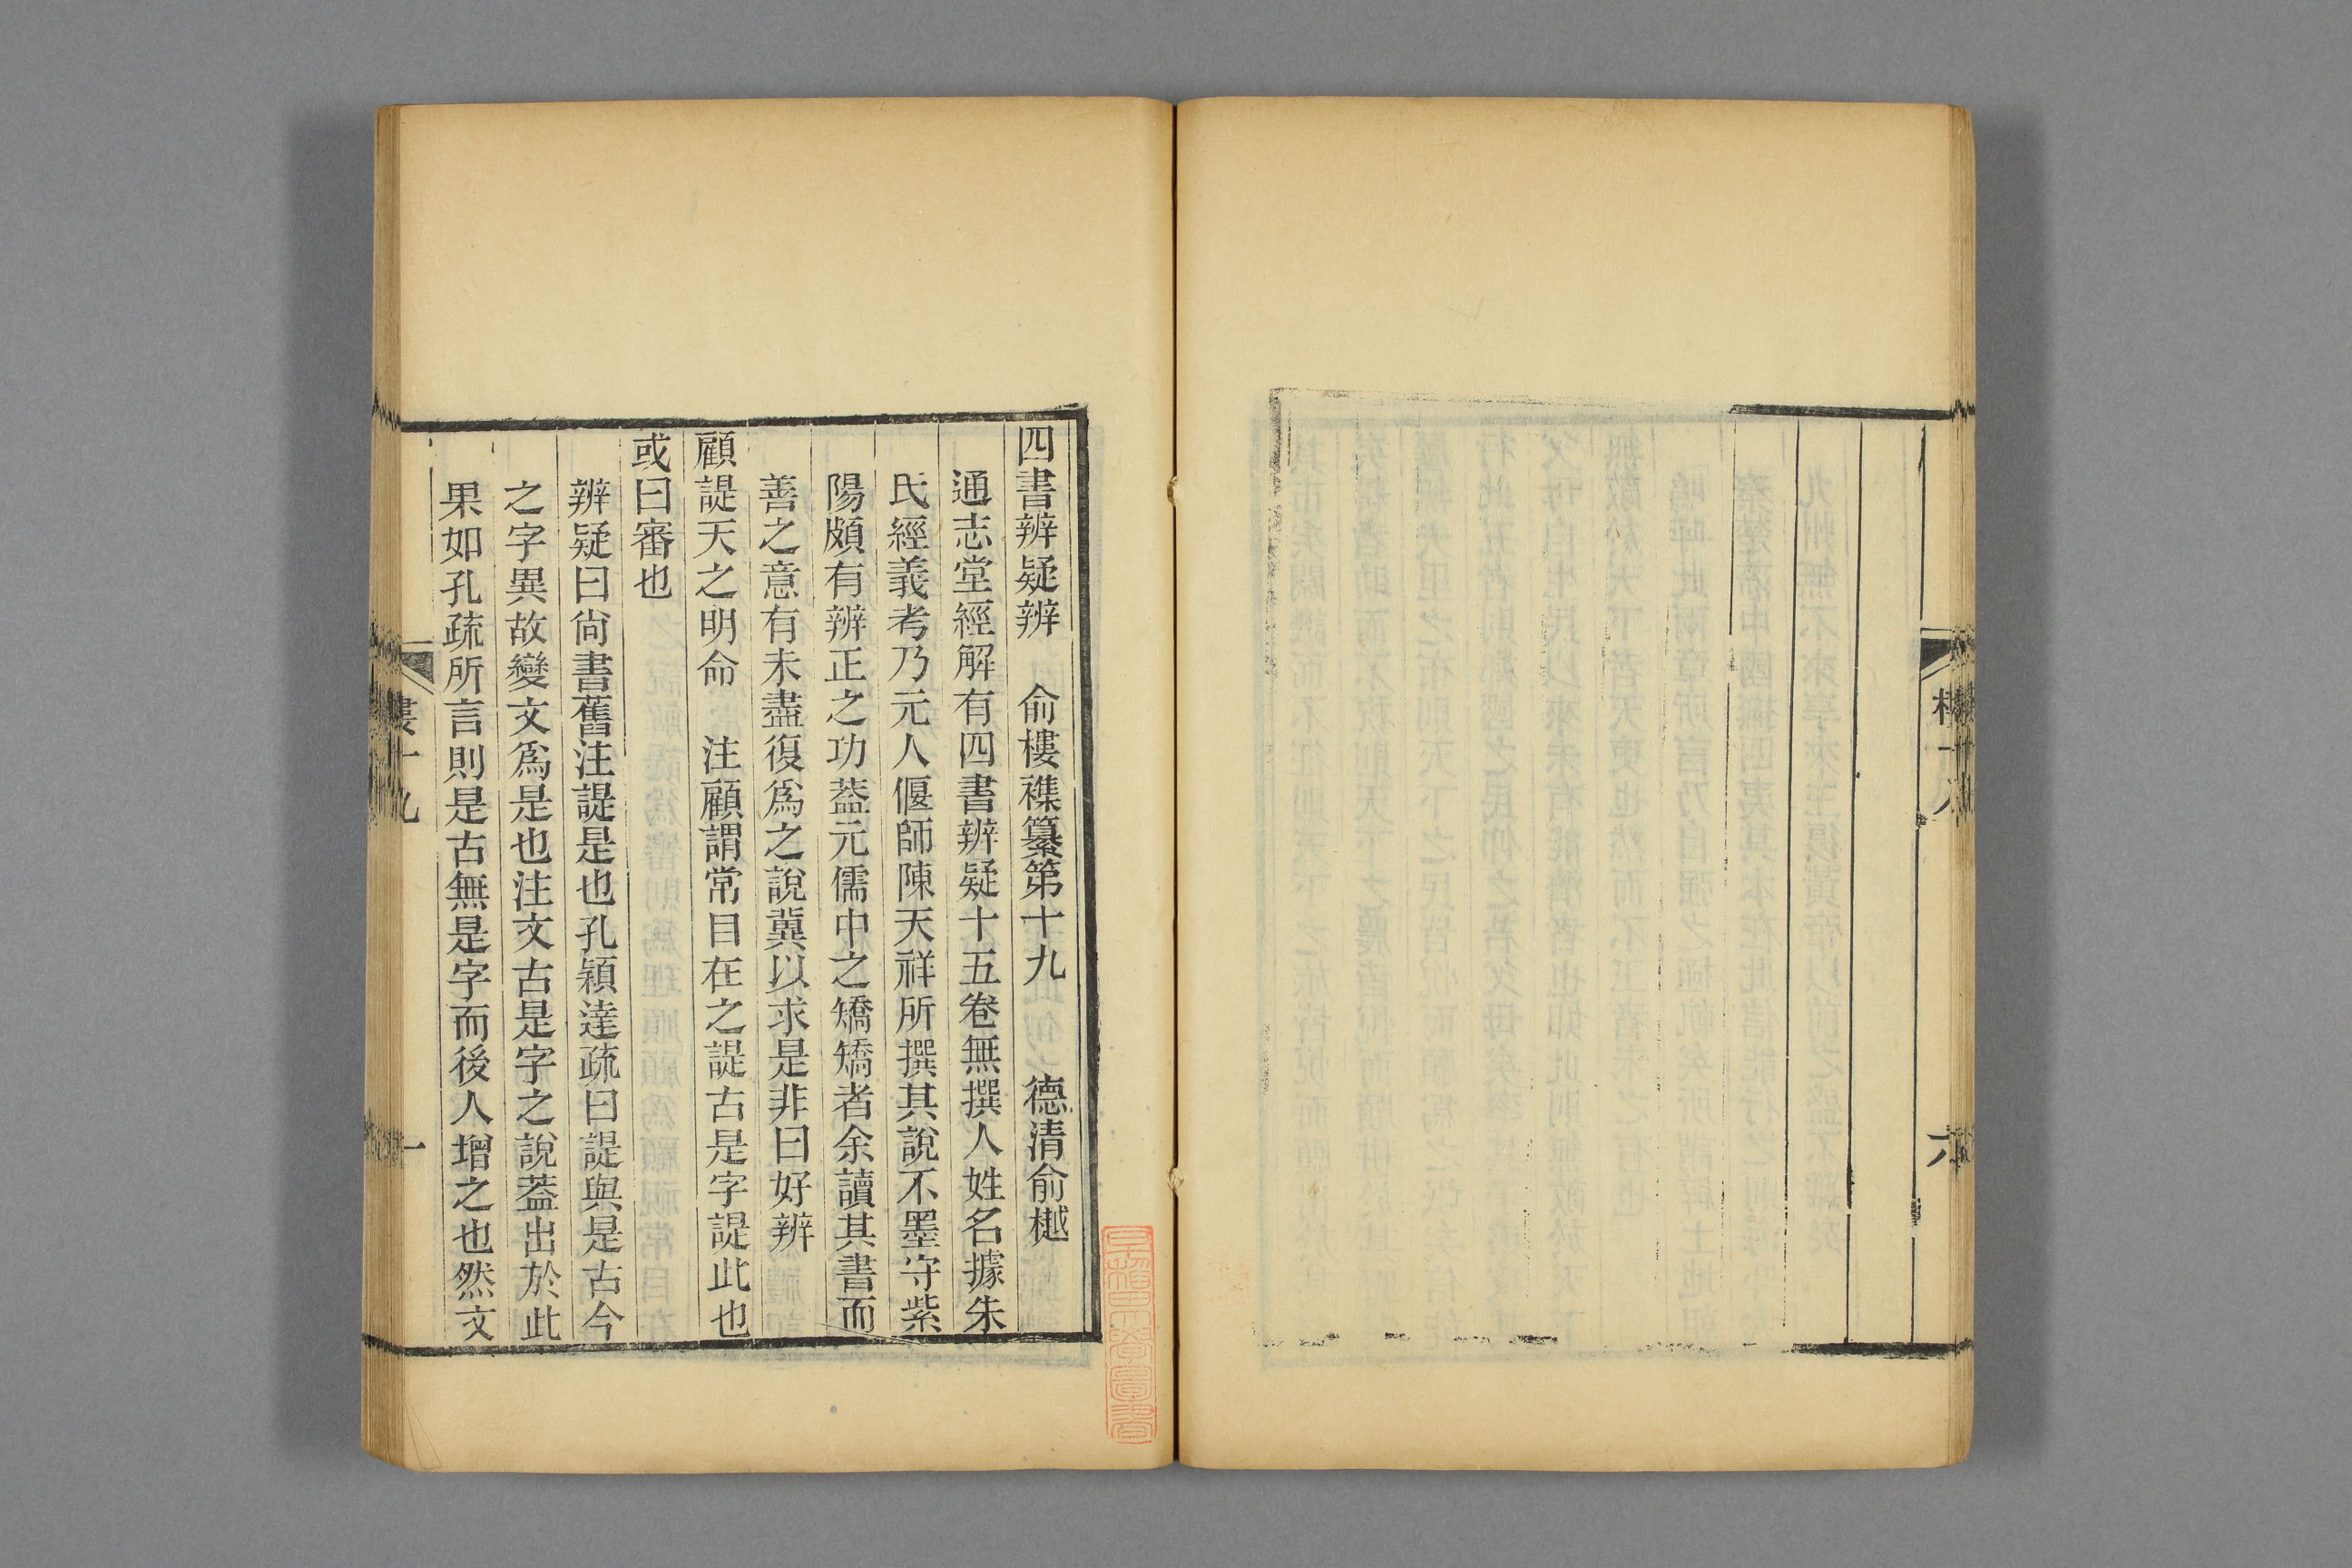 六
四書辨疑辨　俞樓襍纂第十九　德清俞樾
通志堂經解有四書辨疑十五卷無撰人姓名據朱
氏經義考乃元人偃師陳天祥所撰其說不墨守紫
陽頗有辨正之功葢元儒中之矯矯者余讀其書而
善之意有未盡復爲之說冀以求是非曰好辨
顧諟天之明命　注顧謂常目在之諟古是字諟此也
或曰審也
辨疑曰尙書舊注諟是也孔穎達疏曰諟與是古今
之字異故變文爲是也注文古是字之說葢出於此
果如孔疏所言則是古無是字而後人增之也然文
樓十九
一